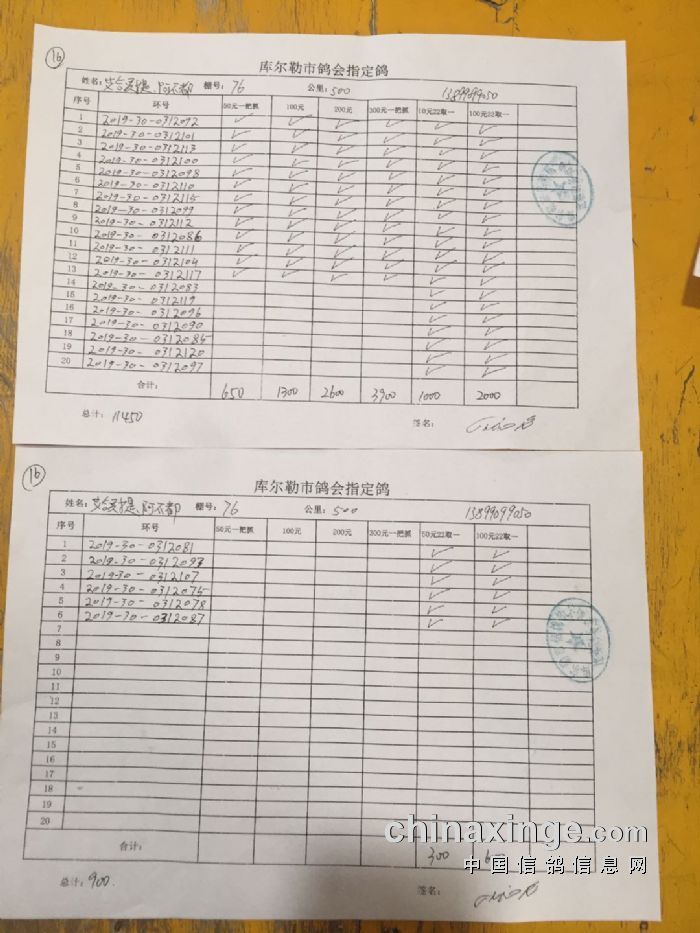 16
库尔勒市鸽会指定鸽
姓名: 棚号: 76 公里: 500 13899099050
序号 环号 50元一把抓 100元 200元 300元一把抓 10元22取一 100元22取一
1 2019-30-0312092 ✓ ✓ ✓ ✓ ✓ ✓
2 2019-30-0312101 ✓ ✓ ✓ ✓ ✓ ✓
3 2019-30-0312113 ✓ ✓ ✓ ✓ ✓ ✓
4 2019-30-0312100 ✓ ✓ ✓ ✓ ✓ ✓
5 2019-30-0312098 ✓ ✓ ✓ ✓ ✓ ✓
6 2019-30-0312110 ✓ ✓ ✓ ✓ ✓ ✓
7 2019-30-0312115 ✓ ✓ ✓ ✓ ✓ ✓
8 2019-30-0312099 ✓ ✓ ✓ ✓ ✓ ✓
9 2019-30-0312112 ✓ ✓ ✓ ✓ ✓ ✓
10 2019-30-0312086 ✓ ✓ ✓ ✓ ✓ ✓
11 2019-30-0312111 ✓ ✓ ✓ ✓ ✓ ✓
12 2019-30-0312104 ✓ ✓ ✓ ✓ ✓ ✓
13 2019-30-0312117 ✓ ✓ ✓ ✓ ✓ ✓
14 2019-30-0312083 ✓ ✓
15 2019-30-0312119 ✓ ✓
16 2019-30-0312096 ✓ ✓
17 2019-30-0312090 ✓ ✓
18 2019-30-0312085 ✓ ✓
19 2019-30-0312120 ✓ ✓
20 2019-30-0312097 ✓ ✓
合计: 650 1300 2600 3900 1000 2000
总计: 11450 签名:
16
库尔勒市鸽会指定鸽
姓名: 棚号: 76 公里: 500 13899099050
序号 环号 50元一把抓 100元 200元 300元一把抓 50元22取一 100元22取一
1 2019-30-0312081 ✓ ✓
2 2019-30-0312093 ✓ ✓
3 2019-30-0312107 ✓ ✓
4 2019-30-0312075 ✓ ✓
5 2019-30-0312078 ✓ ✓
6 2019-30-0312087 ✓ ✓
7
8
9
10
11
12
13
14
15
16
17
18
19
20
合计: 300
总计: 900 签名:
chinaxinge.com
中国信鸽信息网